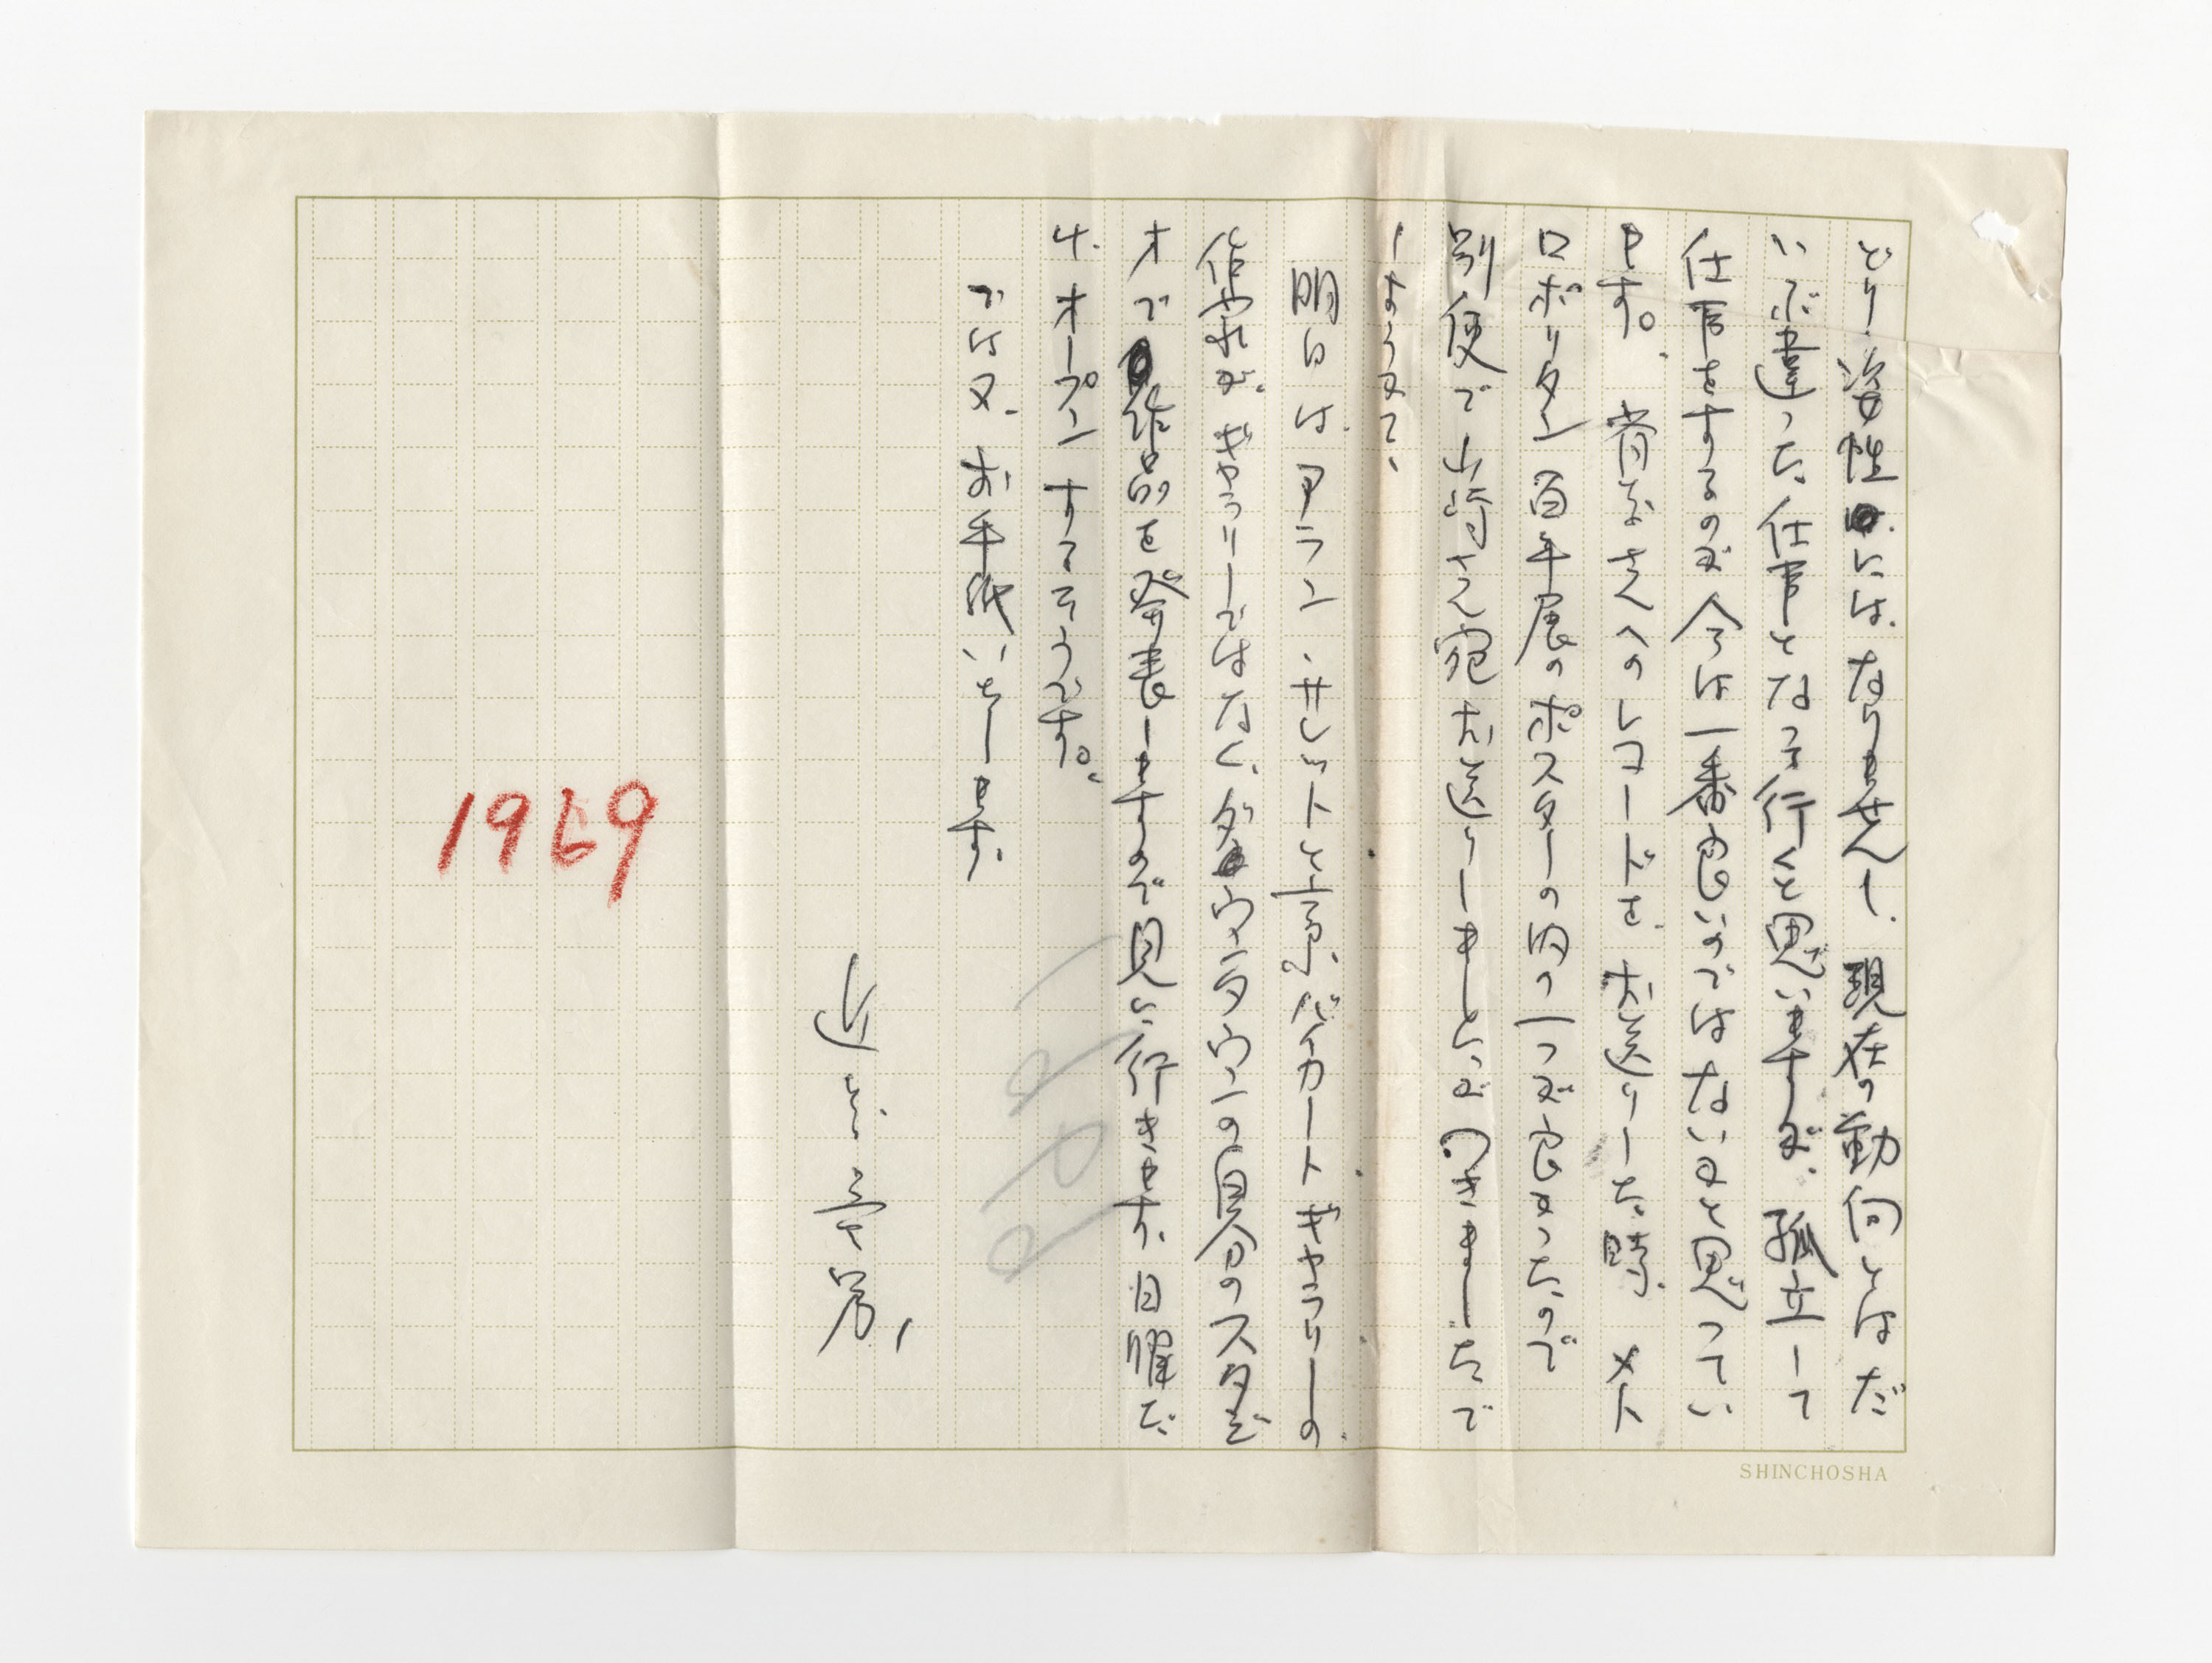 とり姿性にはなりませんし、現在の動向とはだ
いぶ違った仕事となって行くと思いますが、孤立して
仕事をするのが今は一番良いのではないかと思ってい
ます。さんへのレコードを、お送りした時、メト
ロポリタン百年展のポスターの内の一つが良かったので
別便で山崎さん宛お送りしましたがつきましたで
しようか。
明日は、アラン・サレットと云う、バイカートギャラリーの
作家が、ギャラリーではなく、ダウンタウンの自分のスタジ
オで作品を発表しますので見に行きます、日曜だ
け、オープンするそうです。
では又、お手紙いたします。
近
男
1969
SHINCHOSHA